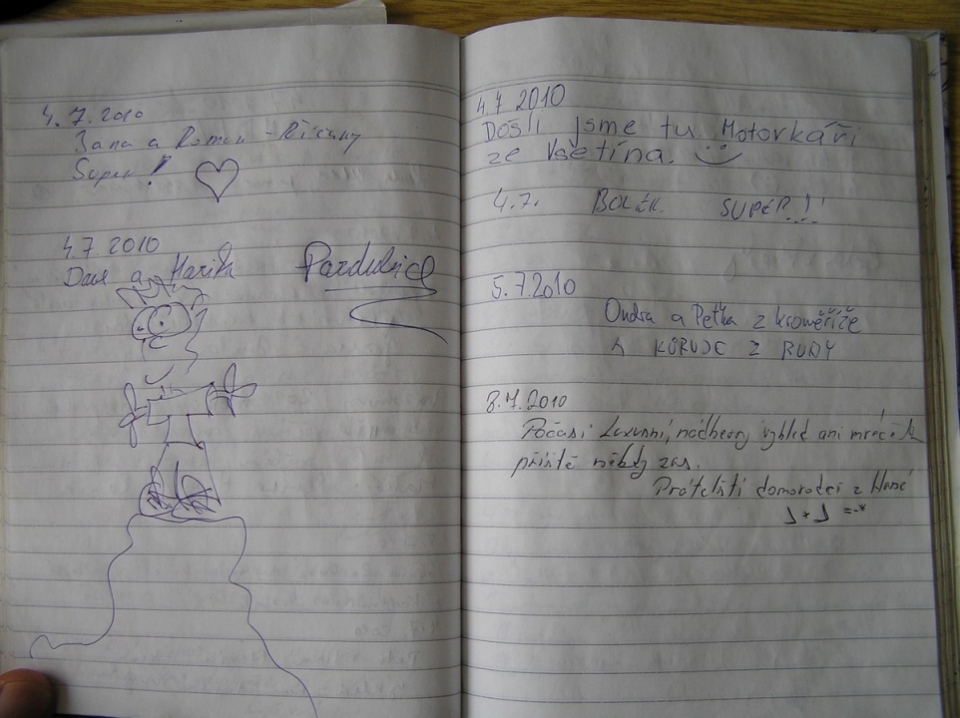 4.7.2010
Jana a Roman - Říčany
Super!
4.7 2010
a Marík Pardubice
4.7 2010
Došli jsme tu Motorkáři
ze Vsetína.
4.7. BOLEK SUPER!!!
5.7.2010
Ondra a Peťka z Kroměříže
z RUDY
8.7.2010
Počasí Luxusní, nádherný výhled ani mráček
příště někdy zas.
Přátelští domorodci z Hané
J + J =-*